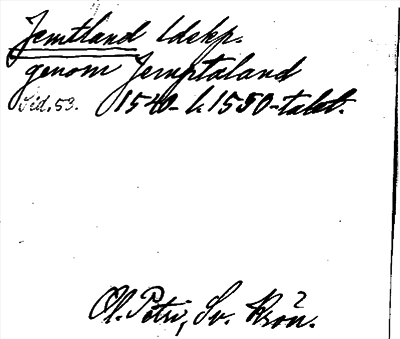 Jemtland ldskp.
genom Jemptaland
sid. 53. 1540- l. 1550-talet.
Ol. Petri, Sv. Krön.